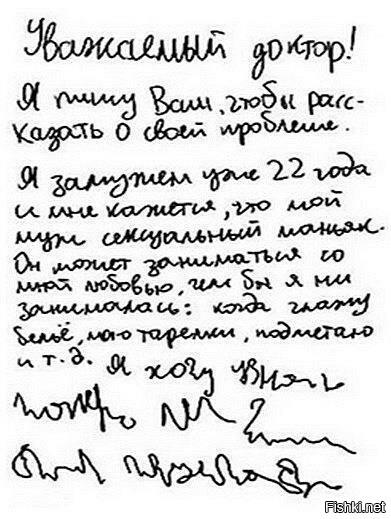 Уважаемый доктор!
Я пишу Вам, чтобы расс-
казать о своей проблеме.
Я замужем уже 22 года
и мне кажется, что мой
муж сексуальный маньяк.
Он может заниматься со
мной любовью, чем бы я ни
занималась: когда глажу
бельё, мою тарелки, подметаю
и т.д. Я хочу
Fishki.net